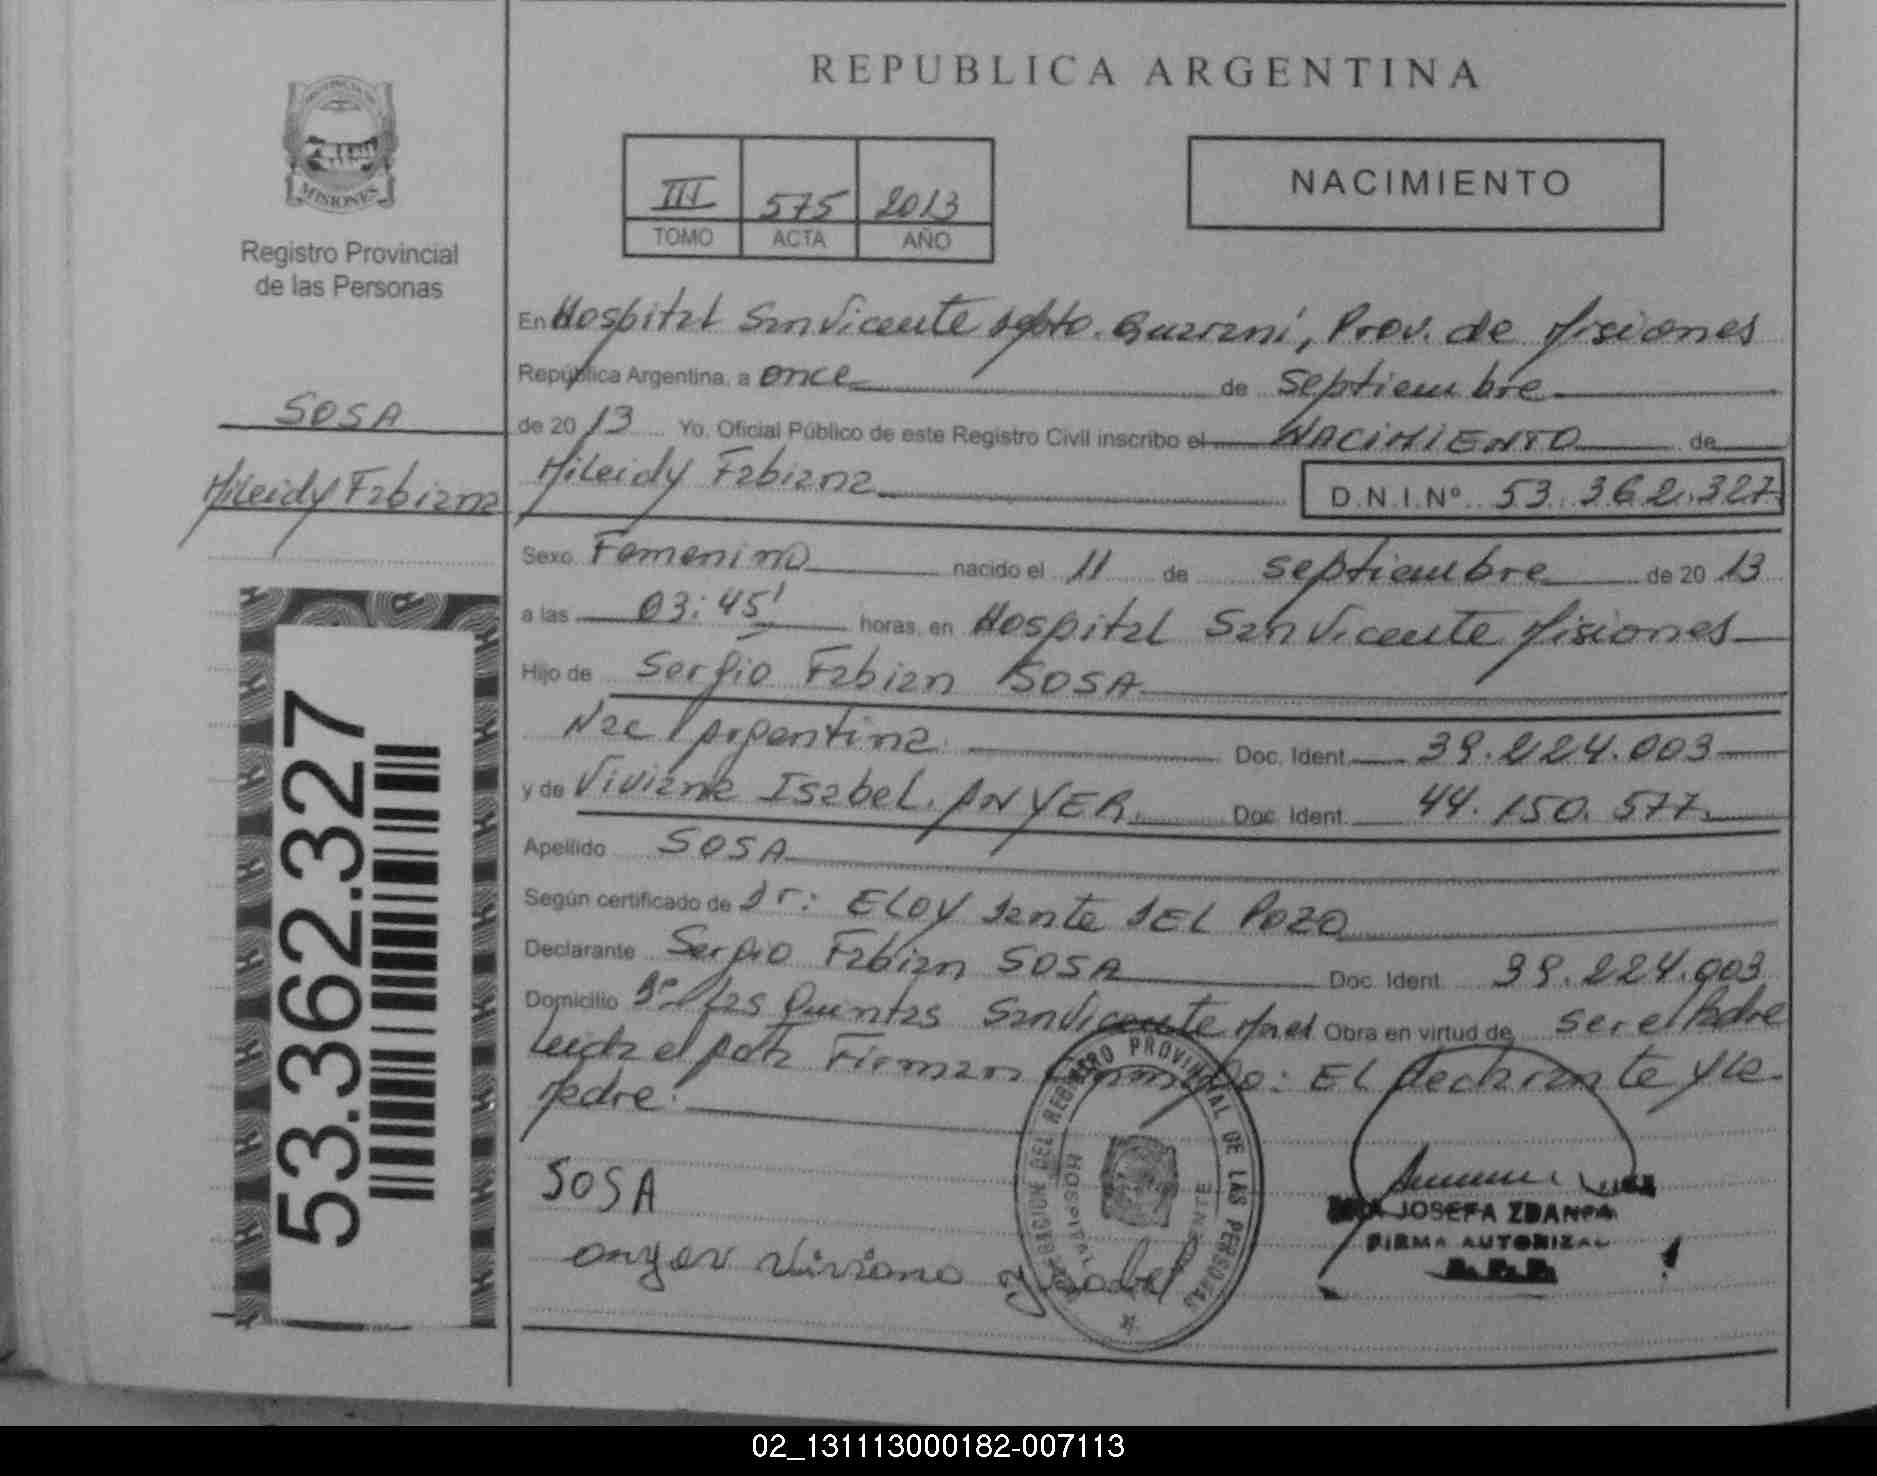 MISIONES
Registro Provincial
de las Personas
SOSA
Mileidy Fabiana
53.362.327
REPUBLICA ARGENTINA
III 575 2013
TOMO ACTA AÑO
NACIMIENTO
En Hospital San Vicente Dpto. Guaraní, Prov. de Misiones
República Argentina, a once de septiembre
de 2013 Yo, Oficial Público de este Registro Civil inscribo el NACIMIENTO de
Mileidy Fabiana D.N.I.Nº 53.362.327
Sexo Femenino nacido el 11 de septiembre de 2013
a las 03:45' horas, en Hospital San Vicente Misiones
Hijo de Sergio Fabian SOSA
Nac Argentina Doc. Ident. 39.224.003
y de Viviana Isabel ANYER Doc. Ident. 44.150.577
Apellido SOSA
Según certificado de Dr: ELOY Dante DEL POZO
Declarante Sergio Fabian SOSA Doc. Ident. 39.224.003
Domicilio Bº Las Quintas San Vicente Mnes Obra en virtud de ser el Padre
Leida el acta Firman Conmigo: El declarante y la
Madre.
SOSA
anyer viviana ysabel
DELEGACION DEL REGISTRO PROVINCIAL DE LAS PERSONAS
HOSPITAL
JOSEFA
FIRMA AUTORIZA
R.P.P.
02_131113000182-007113